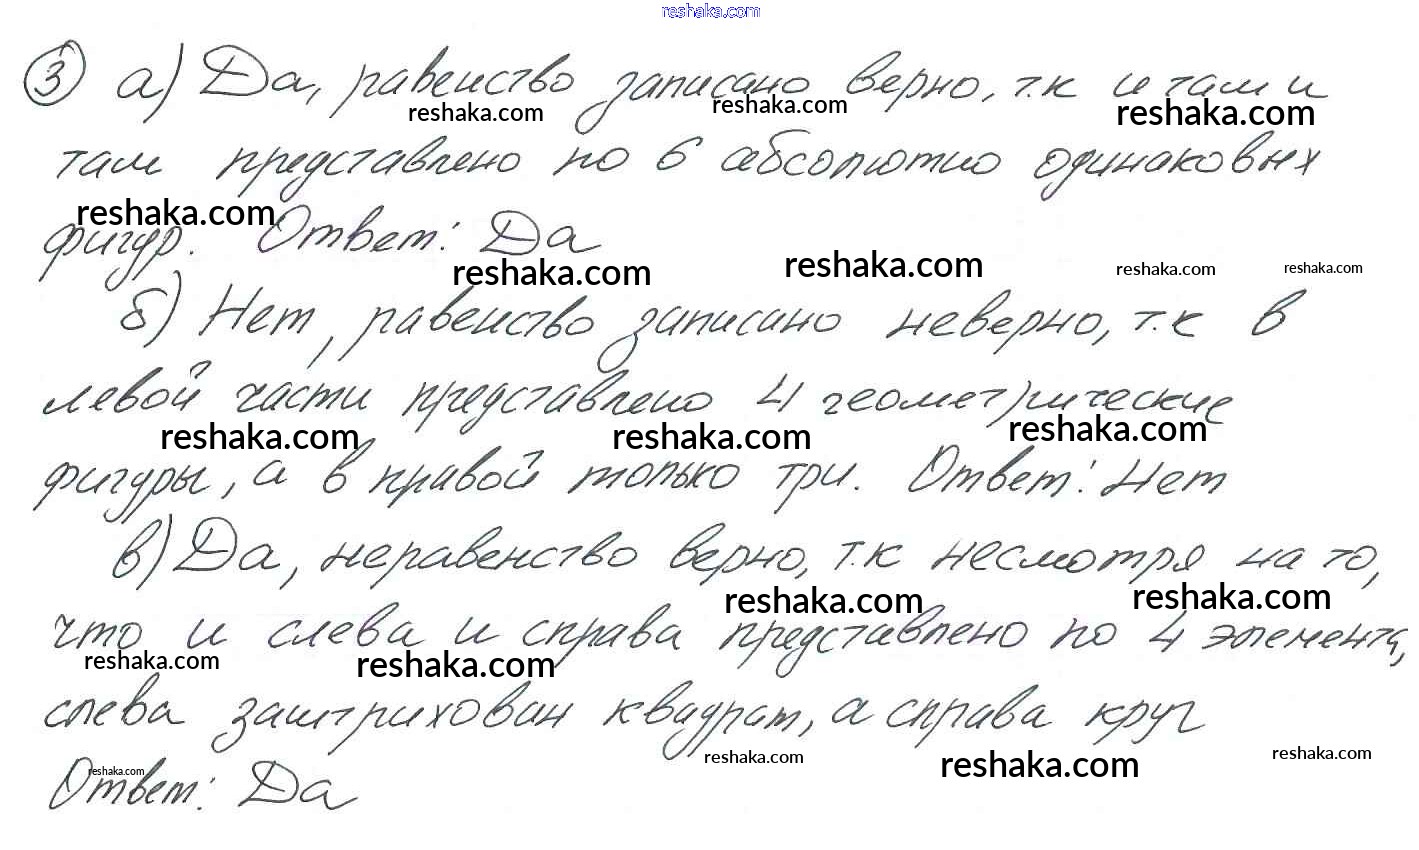 reshaka.com
③ а) Да, равенство записано верно, т.к и там и
reshaka.com reshaka.com reshaka.com
там представлено по 6 абсолютно одинаковых
reshaka.com
фигур. Ответ: Да
reshaka.com reshaka.com reshaka.com reshaka.com
б) Нет, равенство записано неверно, т.к в
левой части представлено 4 геометрические
reshaka.com reshaka.com reshaka.com
фигуры, а в правой только три. Ответ: Нет
в) Да, неравенство верно, т.к несмотря на то,
reshaka.com reshaka.com
что и слева и справа представлено по 4 элемента,
reshaka.com reshaka.com
слева заштрихован квадрат, а справа круг
reshaka.com reshaka.com reshaka.com
Ответ: Да
reshaka.com